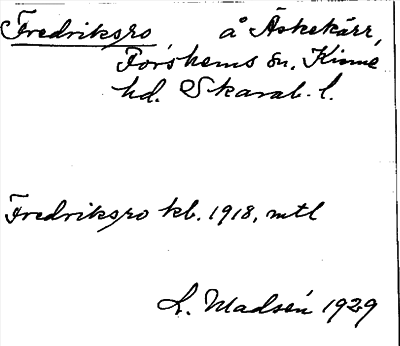 Fredriksro, å Äskekärr,
Forshems sn, Kinne
hd. Skarab. l.
Fredriksro kb. 1918, mtl
L. Madsén 1929